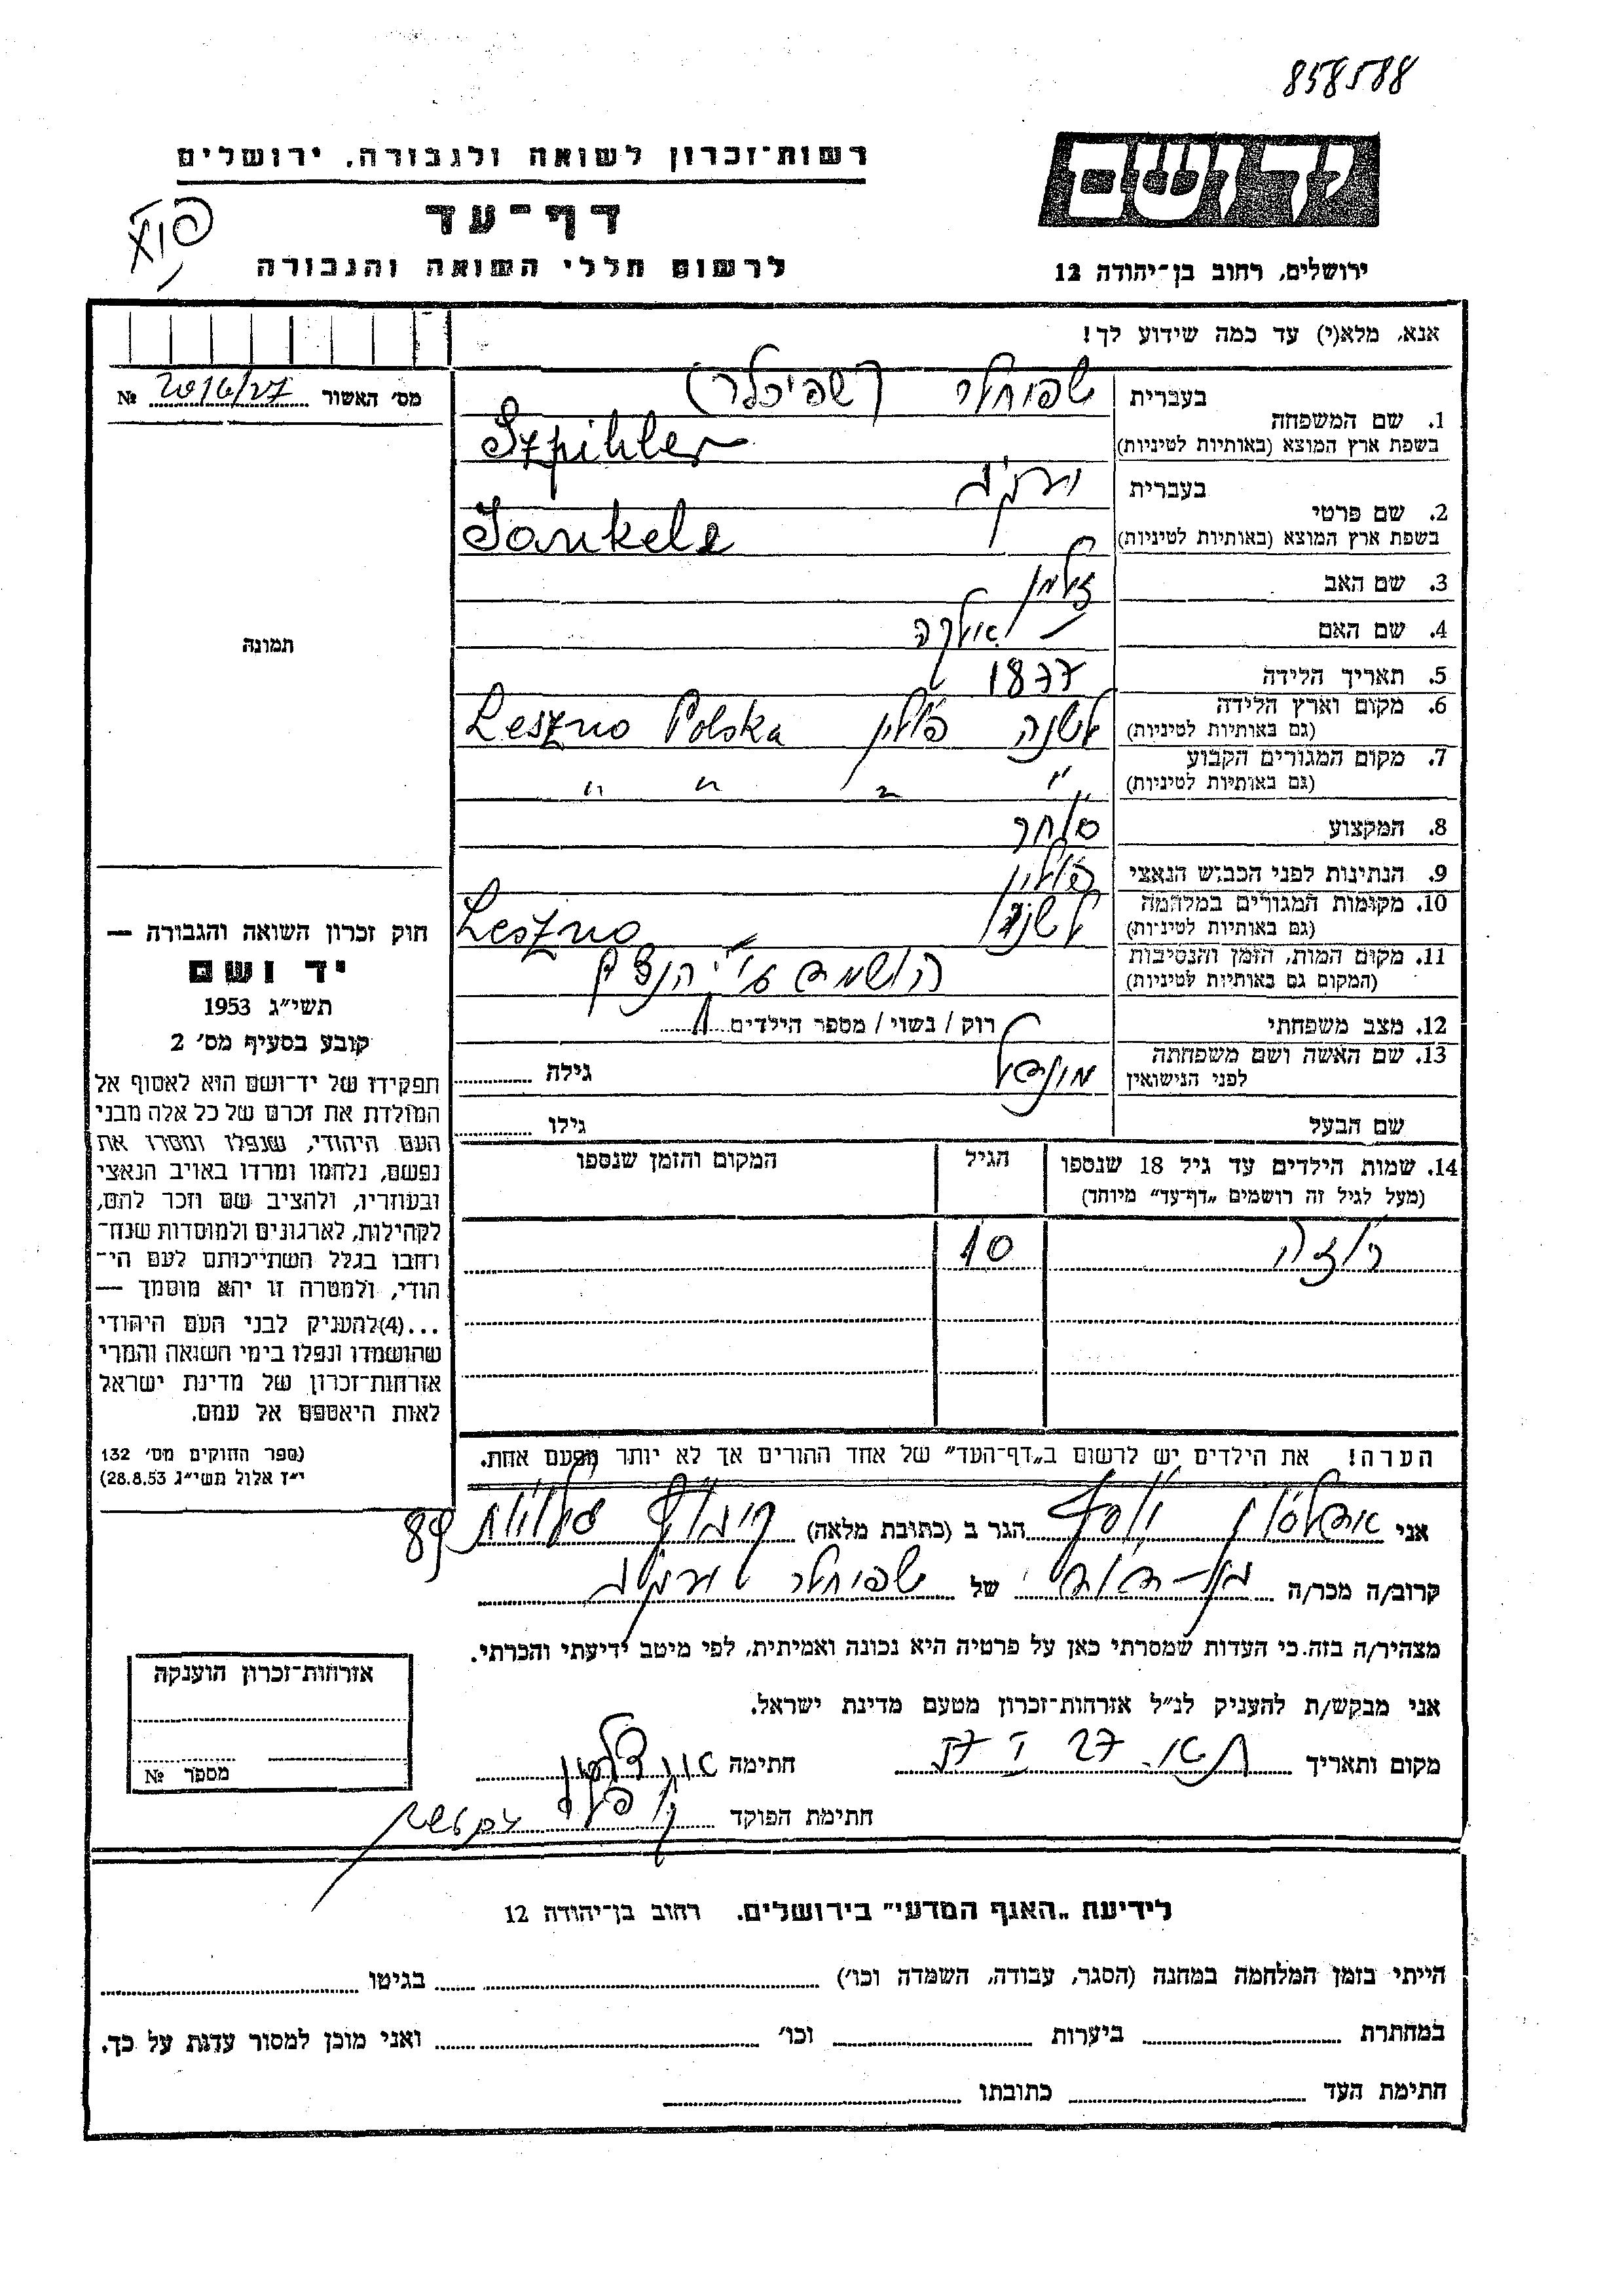 858588
יד ושם
רשות־זכרון לשואה ולגבורה, ירושלים
דף־עד
לרשום חללי השואה והגבורה
ירושלים, רחוב בן־יהודה 12
אנא, מלא(י) עד כמה שידוע לך!
מס׳ האשור № 2016/27
1. שם המשפחה
בעברית שפיחלר (שפיכלר)
בשפת ארץ המוצא (באותיות לטיניות) Szpihler
2. שם פרטי
בעברית
בשפת ארץ המוצא (באותיות לטיניות) Jankele
3. שם האב זלמן
4. שם האם
5. תאריך הלידה 1877
6. מקום וארץ הלידה לשנה פולין Leszno Polska
(גם באותיות לטיניות)
7. מקום המגורים הקבוע
(גם באותיות לטיניות) " " " "
8. המקצוע סוחר
9. הנתינות לפני הכבוש הנאצי פולין
10. מקומות המגורים במלחמה
(גם באותיות לטיניות) לשנה Leszno
11. מקום המות, הזמן והנסיבות
(המקום גם באותיות לטיניות) הושמד ע"י הנצים
12. מצב משפחתי רוק / נשוי / מספר הילדים 1
13. שם האשה ושם משפחתה
לפני הנישואין גילה
שם הבעל גילו
14. שמות הילדים עד גיל 18 שנספו הגיל המקום והזמן שנספו
(מעל לגיל זה רושמים „דף־עד" מיוחד)
רוזה 10
הערה! את הילדים יש לרשום ב„דף־העד" של אחד ההורים אך לא יותר מפעם אחת.
תמונה
חוק זכרון השואה והגבורה —
יד ושם
תשי״ג 1953
קובע בסעיף מס׳ 2
תפקידו של יד־ושם הוא לאסוף אל
המולדת את זכרם של כל אלה מבני
העם היהודי, שנפלו ומסרו את
נפשם, נלחמו ומרדו באויב הנאצי
ובעוזריו, ולהציב שם וזכר להם,
לקהילות, לארגונים ולמוסדות שנח־
רבו בגלל השתייכותם לעם הי־
הודי, ולמטרה זו יהא מוסמך —
...(4)להעניק לבני העם היהודי
שהושמדו ונפלו בימי השואה והמרי
אזרחות־זכרון של מדינת ישראל
לאות היאספם אל עמם.
(ספר החוקים מס׳ 132
י״ז אלול תשי״ג 28.8.53)
אני יוסף הגר ב (כתובת מלאה) 89
קרוב/ה מכר/ה בן-דוד של שפיחלר
מצהיר/ה בזה כי העדות שמסרתי כאן על פרטיה היא נכונה ואמיתית, לפי מיטב ידיעתי והכרתי.
אני מבקש/ת להעניק לנ״ל אזרחות־זכרון מטעם מדינת ישראל.
מקום ותאריך ת"א. 27 חתימה
חתימת הפוקד
אזרחות־זכרון הוענקה
מספר №
לידיעת „האגף המדעי" בירושלים, רחוב בן־יהודה 12
הייתי בזמן המלחמה במחנה (הסגר, עבודה, השמדה וכו׳) בגיטו
במחתרת ביערות וכו׳ ואני מוכן למסור עדות על כך.
חתימת העד כתובתו